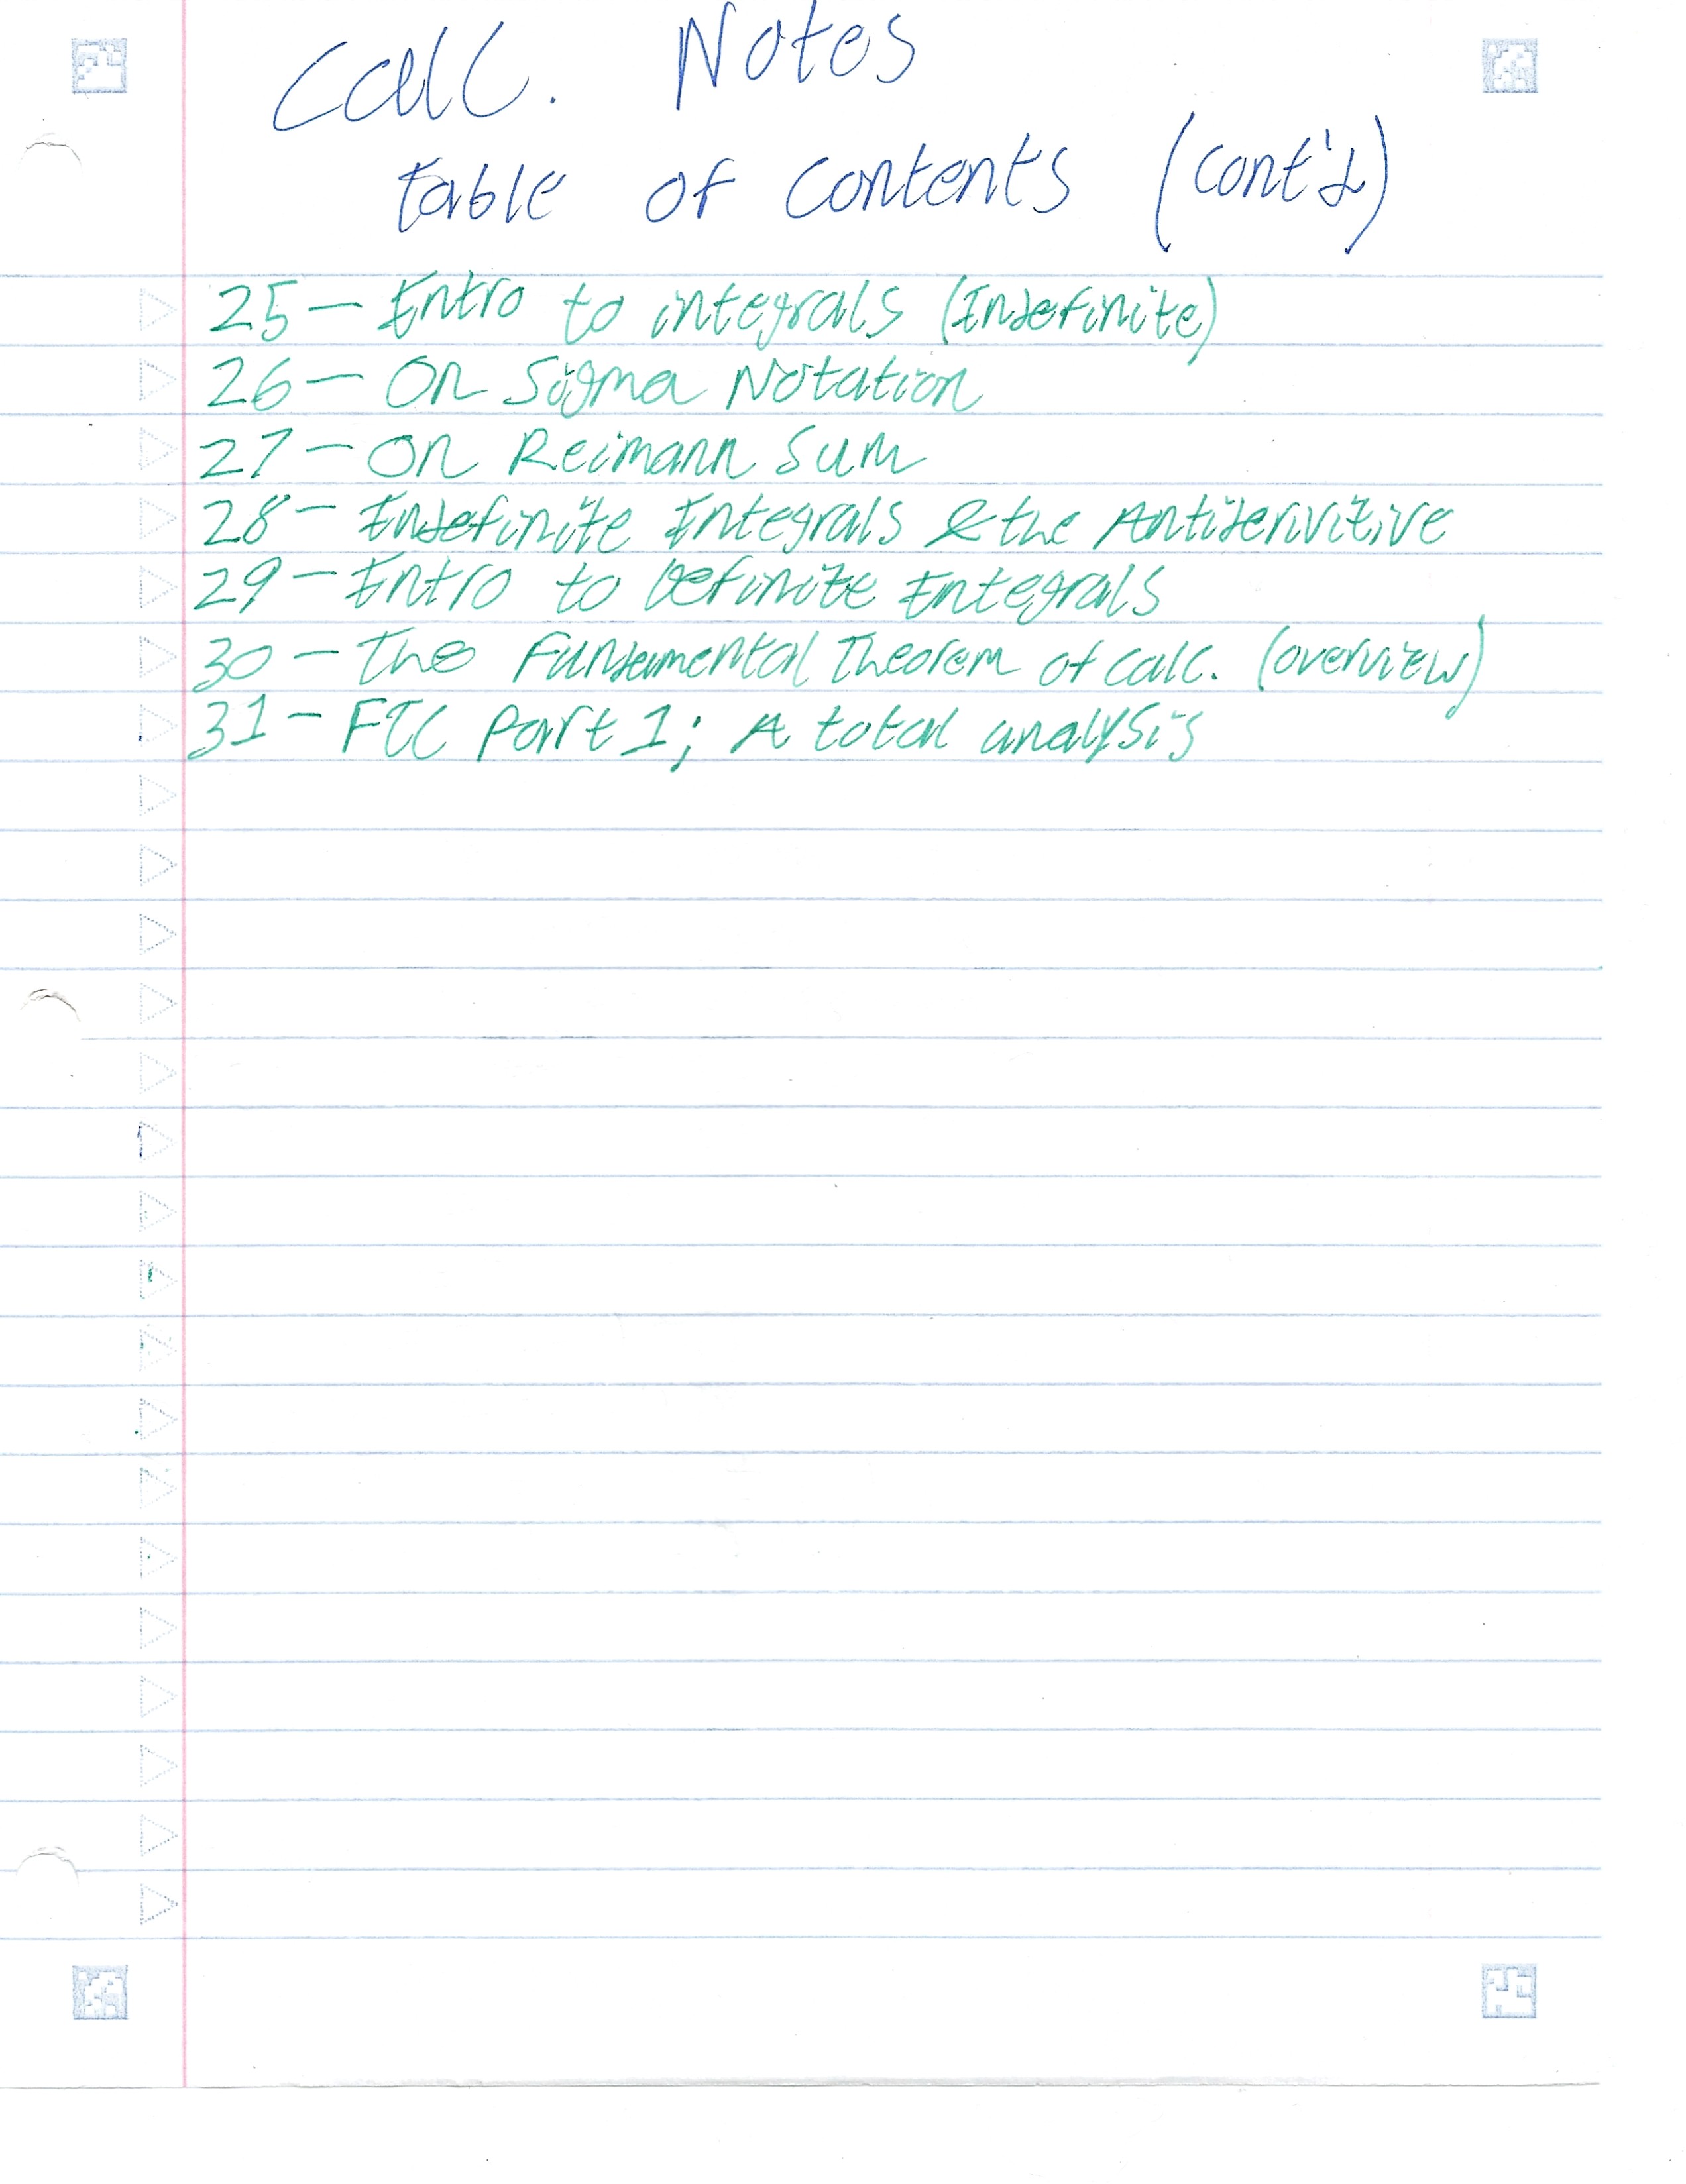 Calc. Notes
table of contents (cont'd)
25 - Intro to integrals (Indefinite)
26 - On Sigma Notation
27 - On Reimann Sum
28 - Indefinite Integrals & the Antiderivitive
29 - Intro to Definite Integrals
30 - The Fundamental Theorem of calc. (overview)
31 - FTC part 1; A total analysis